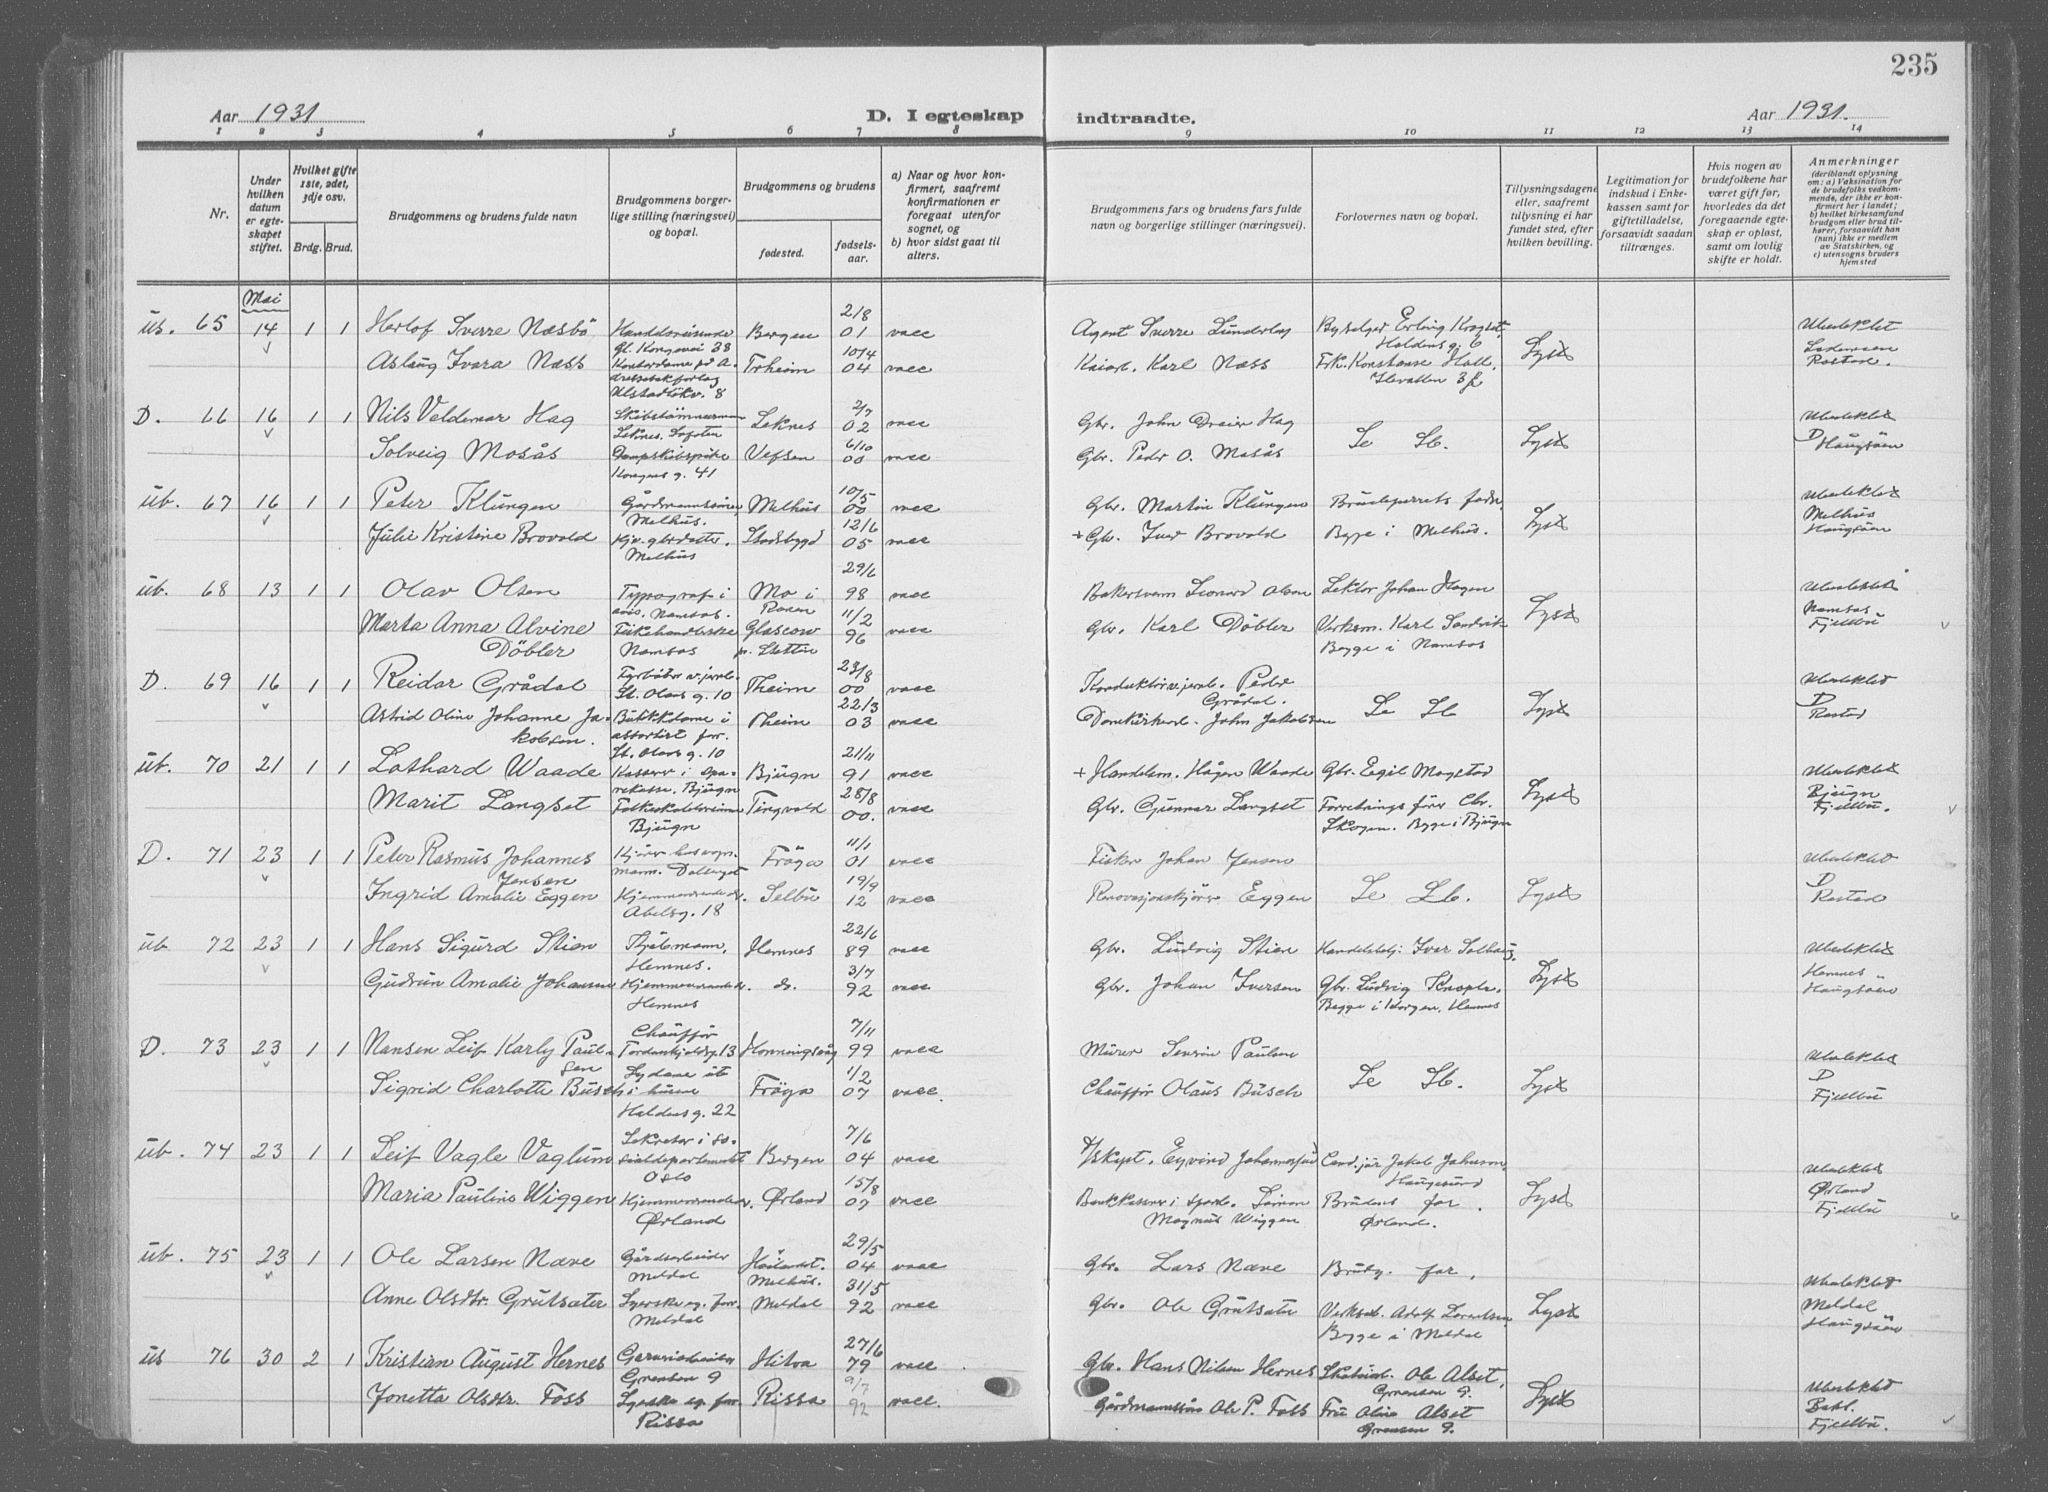 235
Aar 1931 D. I egteskap indtraadte. Aar 1931.
1 2 3 4 5 6 7 8 9 10 11 12 13 14
Nr.
Under hvilken datum er egteskapet stiftet.
Hvilket gifte 1ste, 2det, 3dje osv.
Brdg. Brud.
Brudgommens og brudens fulde navn
Brudgommens borgerlige stilling (næringsvei) og bopæl.
Brudgommens og brudens
fødested.
fødselsaar.
a) Naar og hvor konfirmert, saafremt konfirmationen er foregaat utenfor sognet, og
b) hvor sidst gaat til alters.
Brudgommens fars og brudens fars fulde navn og borgerlige stillinger (næringsvei).
Forlovernes navn og bopæl.
Tillysningsdagene eller, saafremt tillysning ei har fundet sted, efter hvilken bevilling.
Legitimation for indskud i Enkekassen samt for giftetilladelse, forsaavidt saadun tiltrænges.
Hvis nogen av brudefolkene har været gift før, hvorledes da det foregaaende egteskap er opløst, samt om lovlig skifte er holdt.
Anmerkninger (deriblandt oplysning om: a) Vaksination for de brudefolks vedkommende, der ikke er konfirmert her i landet; b) hvilket kirkesamfund brudgom eller brud tilhører, forsaavidt han (hun) ikke er medlem av Statskirken, og c) utensogns bruders hjemsted
Mai
us. 65 14 1 1 Herlof Sverre Næsbö Bergen 2/8 01 vacc Agent Sverre Lunderlag Byselger Erling Krogset, Haldens g. 6 Lyst Ubeslektet
Gl. Kongevei 38
Aslaug Ivara Næss Kontordame på Adressebokforlag Trheim 10/4 04 vacc Kaiarb. Karl Næss Frk. Konstanse Hall, Ilevollen 3 Rostad.
D. 66 16 1 1 Nils Valdemar Hag Skibstömmermann Leknes, Lofoten Leknes 2/7 02 vacc Gbr. John Dreier Hag Se Sb. Lyst Ubeslektet D
Solveig Mosås Kongens g. 41 Vefsen 6/10 00 vacc Gbr. Peder O. Mosås Haugsöen
ub. 67 16 1 1 Peter Klungen Melhus. Melhus 10/5 00 vacc Gbr. Martin Klungen Brudeparrets fedre, Lyst Ubeslektet Melhus
Julie Kristine Brovold Hjv. gbrdatter. Melhus Stadsbygd 12/6 05 vacc + Gbr. Iver Brovold Begge i Melhus. Haugsöen
ub. 68 13 1 1 Olav Olsen Typograf i avis. Namsos. Mo i Ranen 29/6 98 vacc Bakersvenn Leonard Olsen Lektor Johan Hagen Lyst Ubeslektet Namsos
Marta Anna Alvine Döbler Fiskehandlerske Namsos Glascow pr. Stettin 11/2 96 vacc Gbr. Karl Döbler Verksm. Karl Sandvik Begge i Namsos Fjellbu
D. 69 16 1 1 Reidar Grådal Fyrböter v. jernb. St. Olavs g. 10 Theim 23/8 00 vacc Konduktör v. jernb. Peder Grådal. Se Sb Lyst Ubeslektet D
Astrid Oline Johanne Jakobsen. Butikkdame i assortert forr. St. Olavs g. 10 Theim 22/3 03 vacc John Jakobsen Rostad
ub. 70 21 1 1 Lothard Waade Kasserer i sparekasse. Bjugn Bjugn 21/11 91 vacc + Handelsm. Hågen Waade Gbr. Egil Mogstad Lyst Ubeslektet Bjugn
Marit Langset Bjugn Tingvold 28/8 00. vacc Gbr. Gunnar Langset Forretningsförer Chr. Skogen. Begge i Bjugn Fjellbu.
D. 71 23 1 1 Peter Rasmus Johannes Jensen Fröya 11/1 01 vacc Fisker Johan Jensen Se Sb. Lyst Ubeslektet D
Ingrid Amalie Eggen Abelsg. 18 Selbu 19/9 12 vacc Renovasjonskjörer Eggen Rostad
ub 72 23 1 1 Hans Sigurd Stien Hemnes. Hemnes 22/6 89 vacc Gbr. Ludvig Stien Handelsbetj. Ivar Solhaug, Lyst Ubeslektet Hemnes
Gudrun Amalie Johansen Hemnes do. 3/7 92 vacc Gbr. Johan Iversen Gbr. Ludvig Knoph. Begge i Korgen, Hemnes Haugsöen
D. 73 23 1 1 Nansen Leif Karly Paulsen Chaufför Tordenskjoldsg. 13 Honningsvåg 7/11 99 vacc Murer Paulsen Se Sb. Lyst Ubeslektet D
Sigrid Charlotte Busch Sydame ute i husene Haldens g. 22 Fröya 1/2 07 vacc. Chaufför Olaus Busch Fjellbu
ub. 74 23 1 1 Leif Vagle Vaglum Sekretær i Sosialdepartementet Oslo Bergen 7/6 04 vacc Eyvind Cand. jur Jakob Haugesund Lyst Ubeslektet Örland
Maria Pauline Wiggen Örland Ørland 15/8 07 vacc Bankkasserer i Sparb. Simon Magnus Wiggen Brudens far. Örland. Fjellbu
ub. 75 23 1 1 Ole Larsen Næve Gårdsarbeider Meldal Höilandet. Melhus. 29/5 04 vacc Gbr. Lars Næve Brudg. far, Lyst Ubeslektet Meldal
Anne Olsdtr. Grutsæter Syerske eg. forr. Meldal Meldal 31/5 92 vacc Gbr. Ole Grutsæter Adolf Lorentsen Begge i Meldal Haugsöen
us 76 30 2 1 Kristian August Hernes Grensen 9 Hitra 27/6 79 vacc Gbr. Hans Nilsen Hernes Ole Alset, Grensen 9. Lyst Ubeslektet Bakl.
Jonetta Olsdtr. Foss Syerske eg. forr Rissa Rissa 9/7 92 vacc. Gårdmannssön Ole P. Foss Fru Oline Alset Grensen 9. Fjellbu.